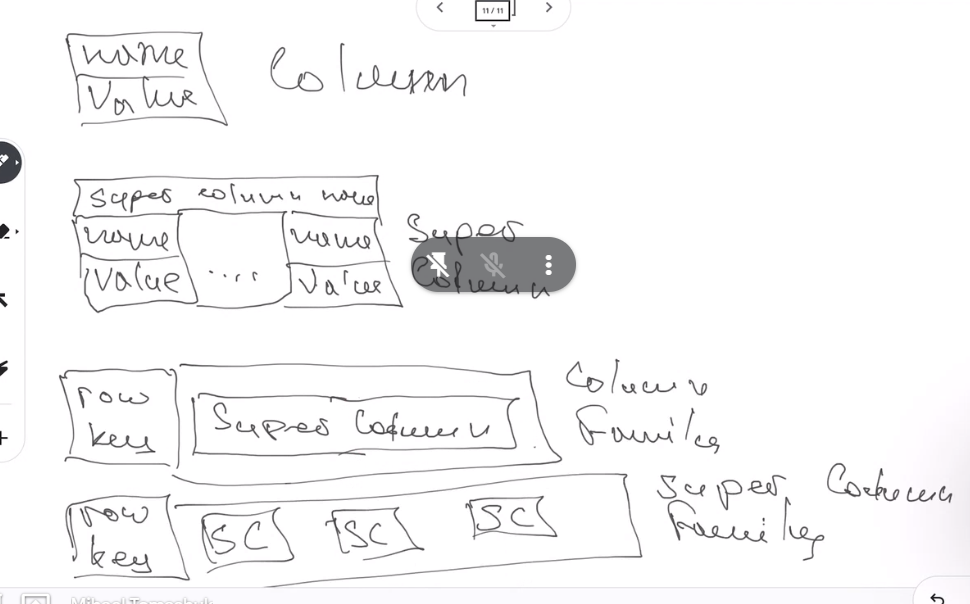 11 / 11
name
value
Column
super column name
name name
value .... value
Super
Column
row
key
Super Column
Column
Family
row
key
SC SC SC
Super Column
Family